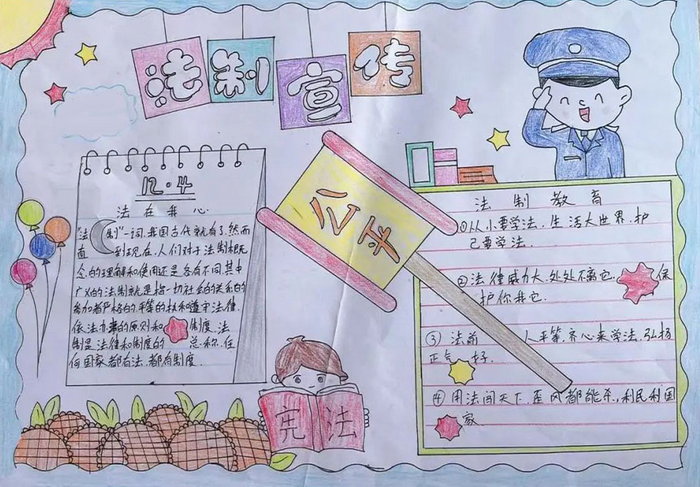 法制宣传
12·4
法在我心
"法制"一词,我国古代就有了,然而
直到现在,人们对于法制概
念的理解和使用还是各有不同,其中
广义的法制就是指一切社会的关系的
参加者严格的平等的执和遵守法律,
依法办事的原则和 制度,法
制是法律和制度的 总称,任
何国家都有法,都有制度.
公平
宪法
法制教育
①从小要学法,生活大世界,护
己要学法.
②法律威力大,处处不离它, 保
护你我它.
③法前 人平等.齐心来学法,弘扬
正气 好.
④用法闯天下,歪风都能杀,利民利国
家